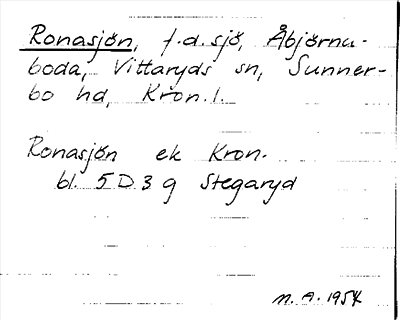 Ronasjön, f.d. sjö, Åbjörna-
boda, Vittaryds sn, Sunner-
bo hd, Kron. l.
Ronasjön ek Kron.
bl. 5D3g Stegaryd
M.A. 1954